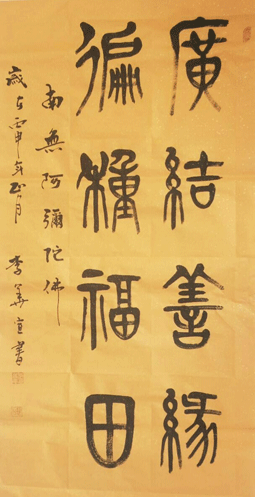 廣結善緣
徧種福田
南無阿彌陀佛
歲在丙申年正月 李義宣書